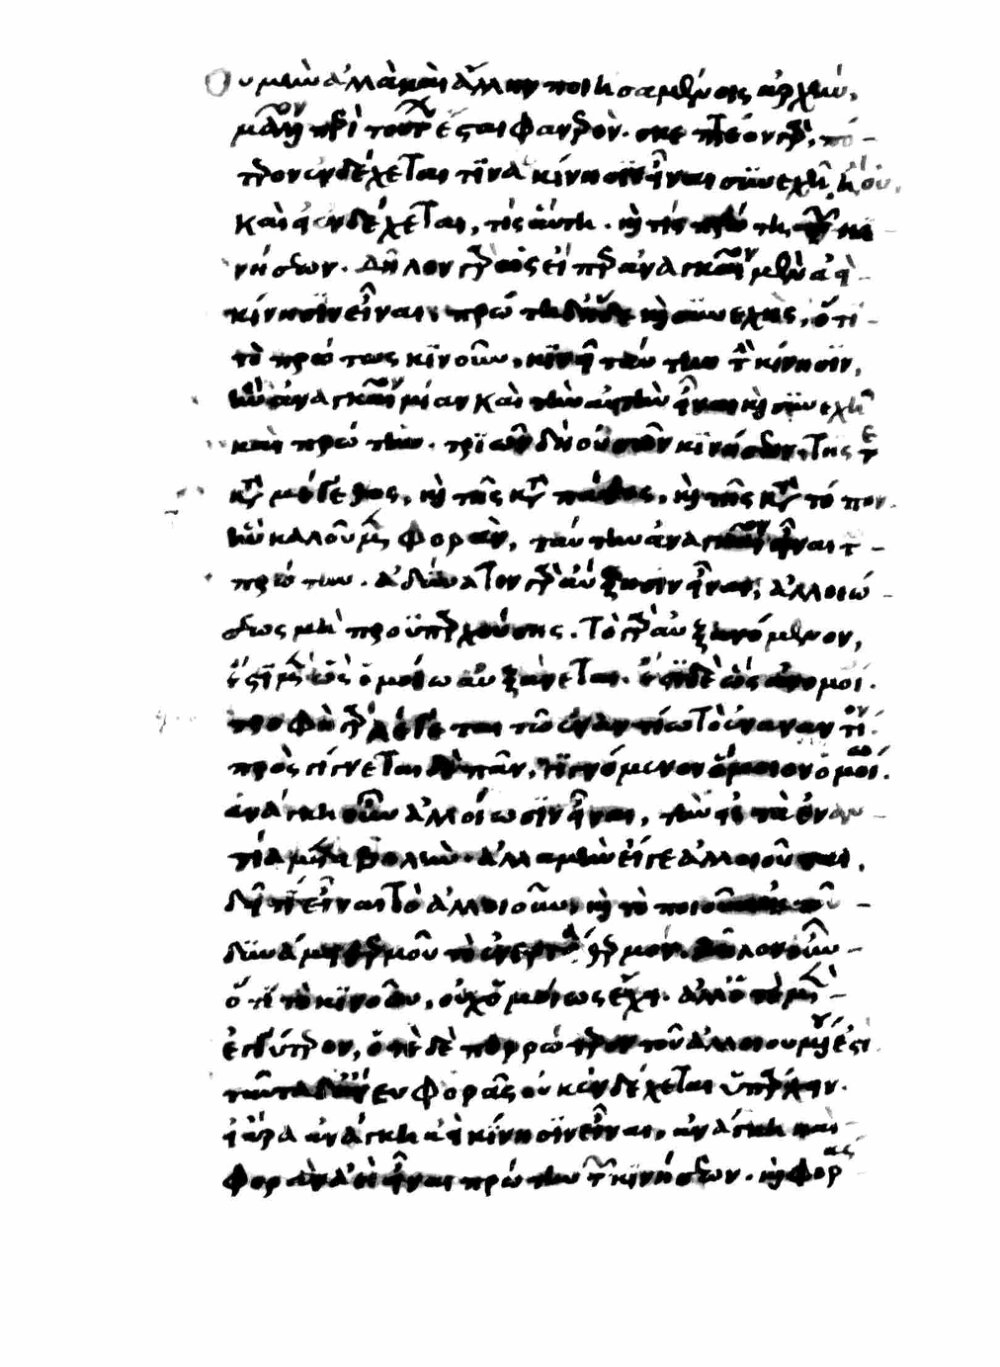 Οὐ μὴν ἀλλὰ καὶ ἄλλην ποιησαμένοις ἀρχὴν,
μᾶλλον περὶ τούτων ἔσται φανερόν. σκεπτέον γὰρ, πό-
τερον ἐνδέχεται τινὰ κίνησιν εἶναι συνεχῆ, ἢ οὔ,
καὶ εἰ ἐνδέχεται, τίς αὕτη. καὶ τίς πρώτη τῶν κι-
νήσεων. δῆλον γὰρ ὡς εἴπερ ἀναγκαῖον μὲν ἀεὶ
κίνησιν εἶναι, πρώτη δὲ ἥδε καὶ συνεχὴς, ὅτι
τὸ πρώτως κινοῦν, κινεῖ ταύτην τὴν κίνησιν,
ἣν ἀναγκαῖον μίαν καὶ τὴν αὐτὴν εἶναι καὶ συνεχῆ
καὶ πρώτην. τριῶν δὴ οὐσῶν κινήσεων, τῆς τε
κατὰ μέγεθος, καὶ τῆς κατὰ πάθος, καὶ τῆς κατὰ τόπον
ἣν καλοῦμεν φορὰν, ταύτην ἀναγκαῖον εἶναι τ-
πρώτην. ἀδύνατον γὰρ αὔξησιν εἶναι, ἀλλοιώ-
σεως μὴ προϋπαρχούσης. τὸ γὰρ αὐξανόμενον,
ἔστι μὲν ὡς ὁμοίω αὐξάνεται. ἔστι δὲ ὡς ἀνομοί.
τροφὴ γὰρ λέγεται τῶ ἐναντίω τὸ ἐναντίον.
προσγίνεται δὲ πᾶν, γινόμενον ὅμοιον ὁμοίω.
ἀνάγκη οὖν ἀλλοίωσιν εἶναι, τὴν εἰς τὰ ἐναν-
τία μεταβολὴν. ἀλλὰ μὴν εἴ γε ἀλλοιοῦται,
δεῖ τι εἶναι τὸ ἀλλοιοῦν, καὶ τὸ ποιοῦν ἐκ τοῦ
δυνάμει θερμοῦ τὸ ἐνεργεία θερμόν. δῆλον οὖν
ὅτι τὸ κινοῦν, οὐχ ὁμοίως ἔχει. ἀλλ' ὁτὲ μὲν
ἐγγύτερον, ὁτὲ δὲ πορρώτερον τοῦ ἀλλοιουμένου ἐστι
ταῦτα δ' ἄνευ φορᾶς οὐκ ἐνδέχεται ὑπάρχειν.
εἰ ἄρα ἀνάγκη ἀεὶ κίνησιν εἶναι, ἀνάγκη καὶ
φορὰν ἀεὶ εἶναι πρώτην τῶν κινήσεων. καὶ φορᾶς